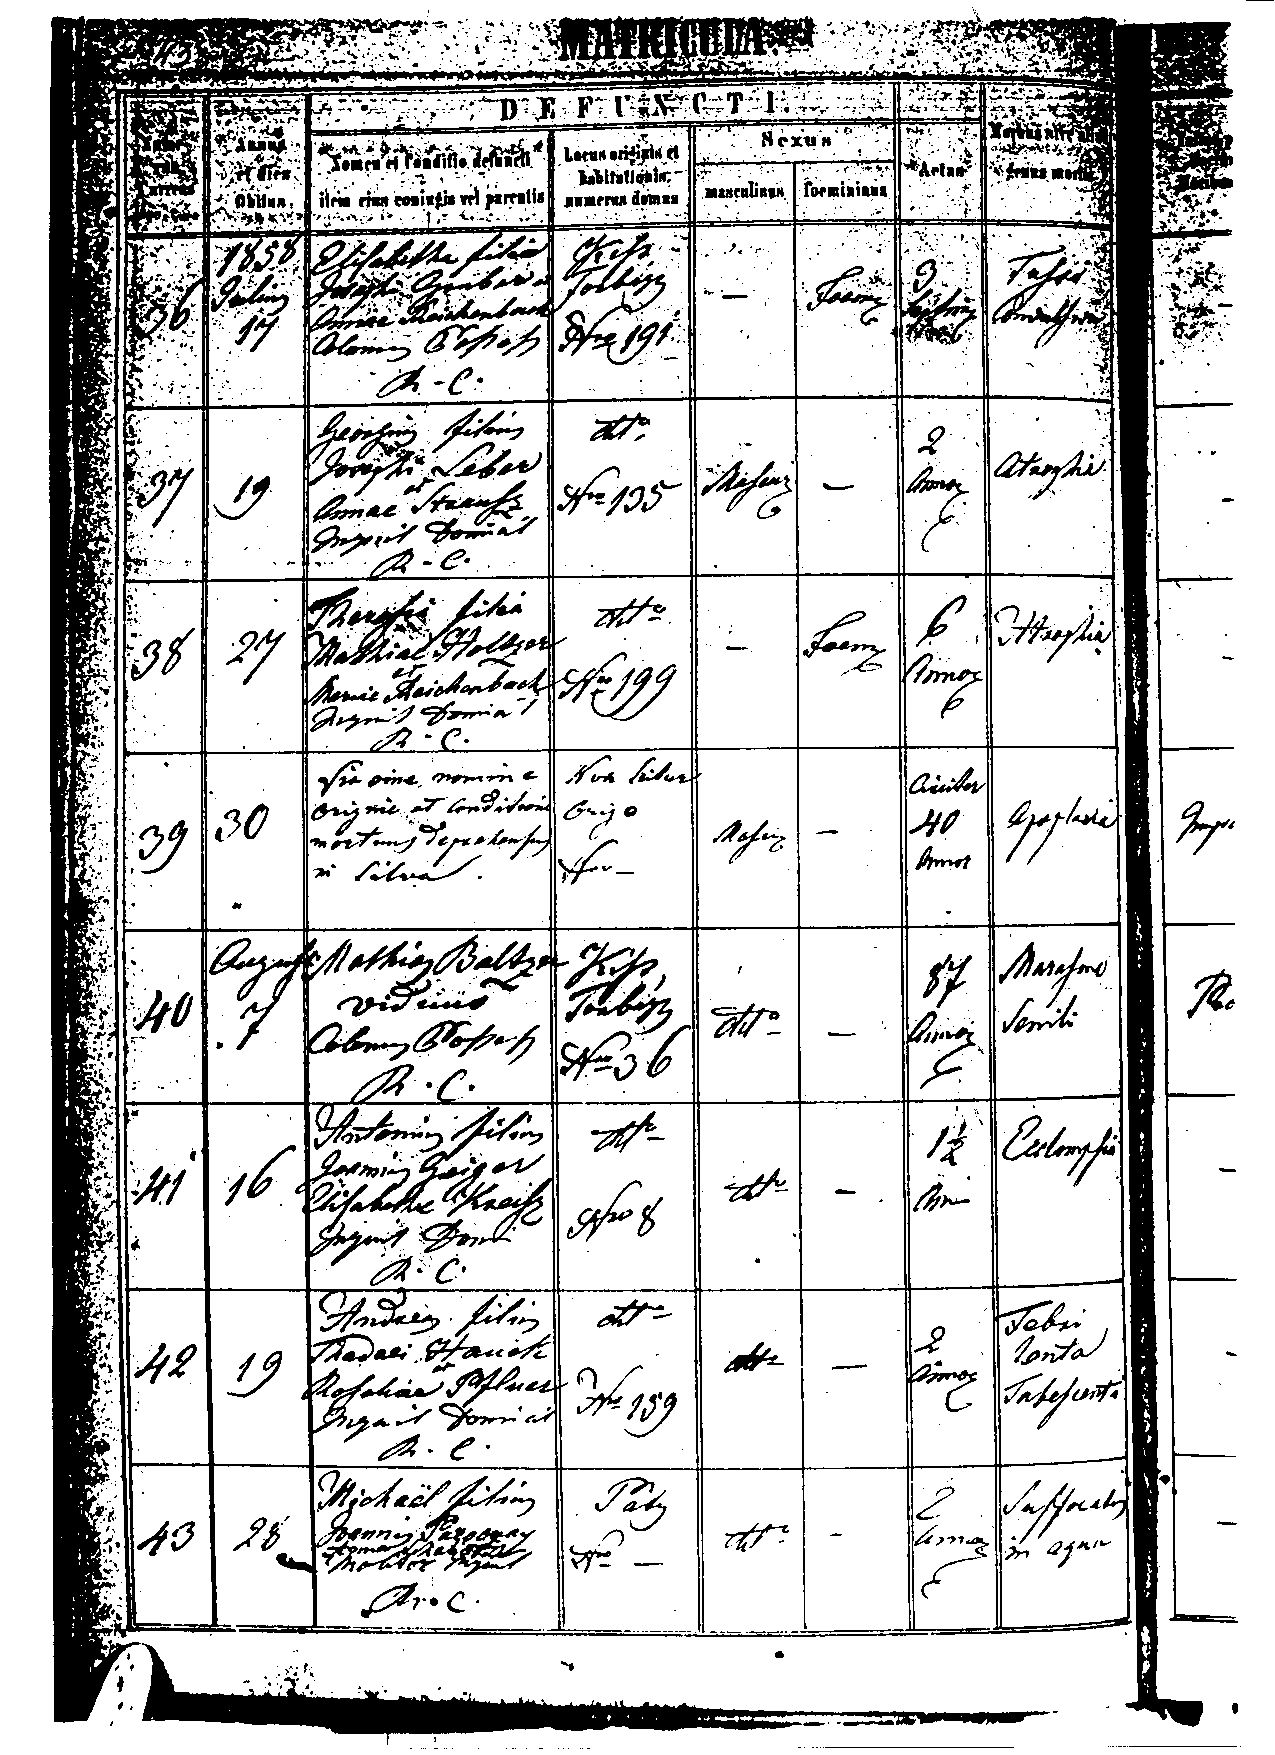 MATRICULA
DEFUNCTI.
Annus et dies Obitus.
Nomen et Conditio defuncti
item ejus conjugis vel parentis
Locus originis et habitationis, numerus domus
Nexus
masculinus
foemininus
Aetas
Morbus sive aliud genus mortis
36
1858
Julius
17
Elisabetha filia
Josephi Gruber et
Annae Reichenbach
Colonus
R. C.
Kiss
Torbágy
Nro 191
—
Foem
3
Tussi
37
19
Georgius filius
Josephi Leber
et
Annae Strausz
Inquil Domial
R. C.
dtto
Nro 135
Mascu
—
2
Annor
Atrophia
38
27
Theresia filia
Mathiae Holtzer
et
Reichenbach
Inquil Domial
R. C.
dtto
Nro 199
—
Foem
6
Annor
Atrophia
39
30
Vir sine nomine
origine et conditione
mortuus deprehensus
in Silva.
Non scitur
Origo
Nro —
Mascu
—
Circiter
40
Annor
Apoplexia
40
August
7
Mathias Baltzer
viduus
Colonus
R. C.
Kiss
Torbágy
Nro 36
dtto
—
87
Annor
Marasmo
Senili
41
16
Antonius filius
Joannis Geiger
Elisabethae Kreisz
Inquil Domi
R. C.
dtto
Nro 8
dtto
—
1½
Ann
Ecclampsia
42
19
Andreas filius
Thadaei Hauck
et
Rosaliae Pfluer
Inquil Domial
R. C.
dtto
Nro 159
dtto
—
2
Annor
Febri
lenta
Tabescenti
43
28
Michael filius
Joannis
R. C.
Páty
Nro —
dtto
—
2
Annor
Suffocatus
in aqua